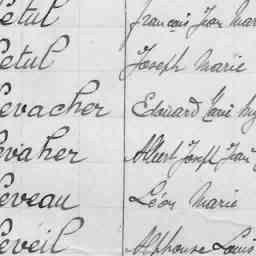 etul françois Jean Mar
etul Joseph Marie
evacher Edouard Louis hy
evaher Albert Joseph Jean
eveau Léon Marie
eveil Alphonse Louis